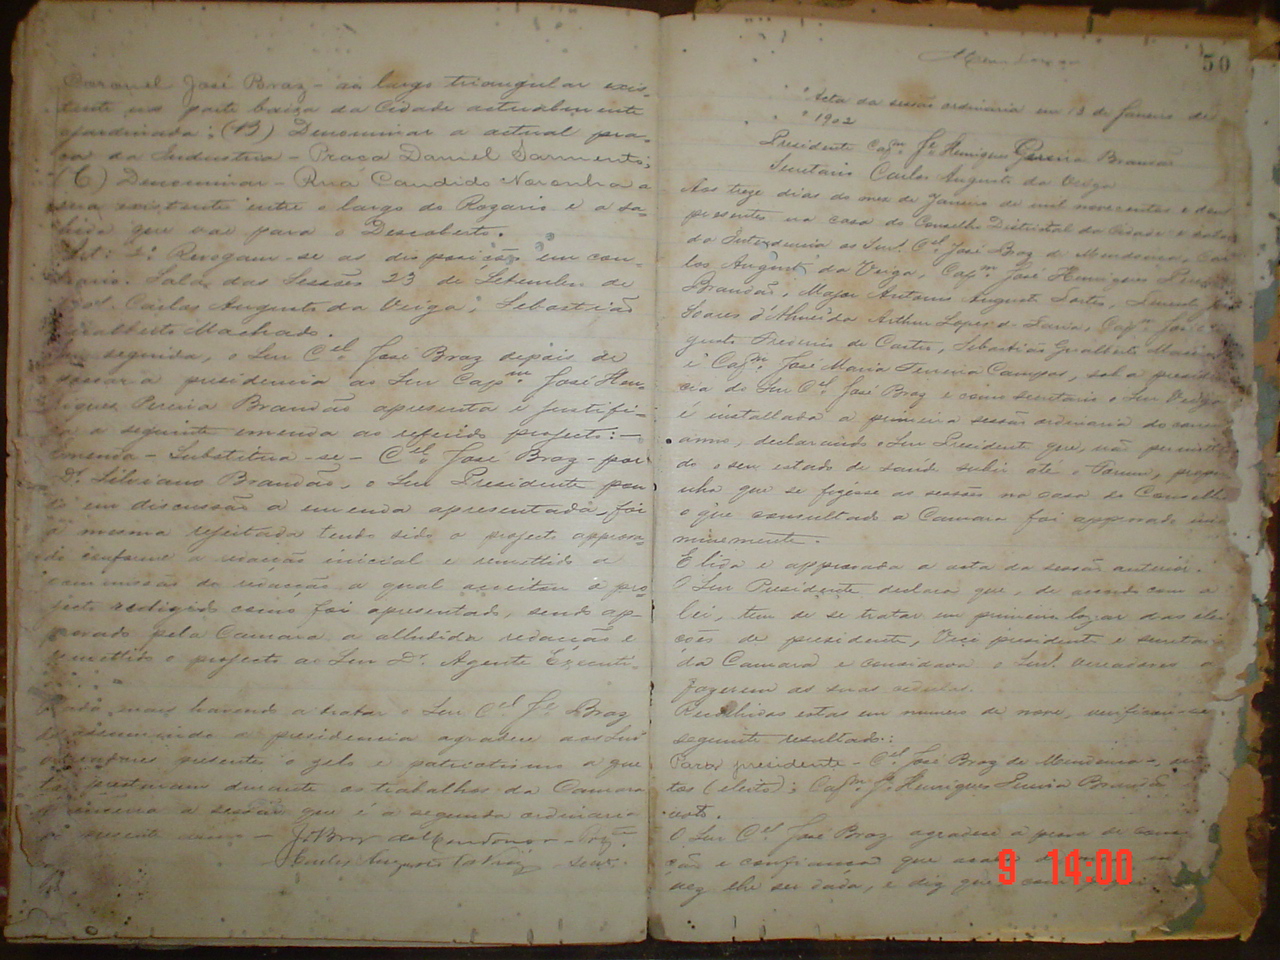 Coronel José Braz - ao largo triangular exis-
tente na parte baixa da Cidade actualmente
ajardinada; (B) Denominar a actual pra-
ça da Industria - Praça Daniel Sarmento;
(C) Denominar - Rua Candido Noronha a
existente entre o largo do Rozario e a sa-
hida que vae para o Descoberto.
Art: 2º Revogam-se as disposições em con-
trario. Sala das Sessões 23 de Setembro de
Carlos Augusto da Veiga, Sebastião
Gualberto Machado.
Em seguida, o Snr Cel. José Braz depois de
passar a presidencia ao Snr Capm. José Hen-
riques Pereira Brandão apresenta e justifi-
ca a seguinte emenda ao referido projecto: -
Emenda - Substitua-se - Cel. José Braz - por
Dr. Silviano Brandão, o Snr Presidente poz
em discussão a emenda apresentada, foi
a mesma rejeitada tendo sido o projecto approva-
do conforme a redacção inicial e remettido a
commissão de redacção a qual acceitou o pro-
jecto redigido como foi apresentado, sendo ap-
provado pela Camara a alludida redacção e
remettido o projecto ao Snr Dr. Agente Executi-
Nada mais havendo a tratar o Snr Cel Jé Braz
reassumindo a presidencia agradece aos Snrs
vereadores presentes o zelo e patriotismo a que
prestaram durante os trabalhos da Camara
encerra a sessão que é a segunda ordinaria
J. Braz de Mendonça - Pte.
Carlos Augusto da Veiga - Secr.
50
Acta da sessão ordinaria em 13 de Janeiro de
1902
Presidente Capm. Jé Henriques Pereira Brandão
Secretario Carlos Augusto da Veiga
Aos treze dias do mez de Janeiro de mil novecentos e dous
presentes na casa do Conselho Districtal da Cidade e
da Intendencia os Snrs. Cel. José Braz de Mendonça, Car-
los Augusto da Veiga, Capm José Henriques Pereira
Brandão, Major Antonio Augusto
Soares d'Almeida Arthur Lopes de Faria, Capm José
gusto Frederico de Castro, Sebastião Gualberto Macha
e Capm. José Maria Ferreira Campos, sob a presiden
cia do Snr Cel. José Braz e como secretario o Snr Veiga
é installada a primeira sessão ordinaria do corrente
anno, declarando o Snr Presidente que, não permittin
do o seu estado de saúde subir até o Forum, propu
nha que se fizesse as sessões na casa do Conselho
o que consultado a Camara foi approvado una
nimemente.
É lida e approvada a acta da sessão anterior.
O Snr Presidente declara que, de accordo com a
lei, tem de se tratar em primeiro logar das elei
ções de presidente, Vice presidente e secretario
da Camara e convidava os Snrs. vereadores a
fazerem as suas cedulas.
Recolhidas estas em numero de nove, verificou-se
seguinte resultado:
Para presidente - Cel. José Braz de Mendonça
tos (eleito); Capm Jé Henriques Pereira Brandão
voto.
O Snr Cel José Braz agradece a prova de
ção e confiança que acaba de
vez lhe ser dada, e diz que
9 14:00